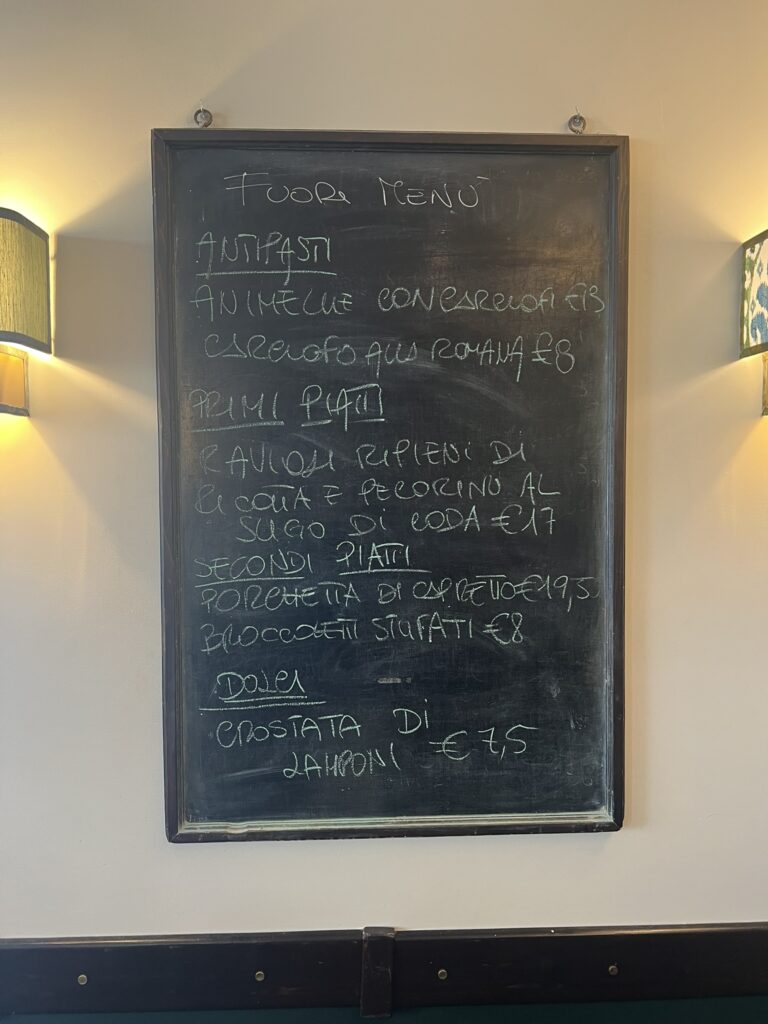 FUORI MENÙ
ANTIPASTI
ANIMELLE CON CARCIOFI €13
CARCIOFO ALLA ROMANA €8
PRIMI PIATTI
RAVIOLI RIPIENI DI
RICOTTA E PECORINO AL
SUGO DI CODA €17
SECONDI PIATTI
PORCHETTA DI CAPRETTO €19,5
BROCCOLETTI STUFATI €8
DOLCI
CROSTATA DI
LAMPONI €7,5